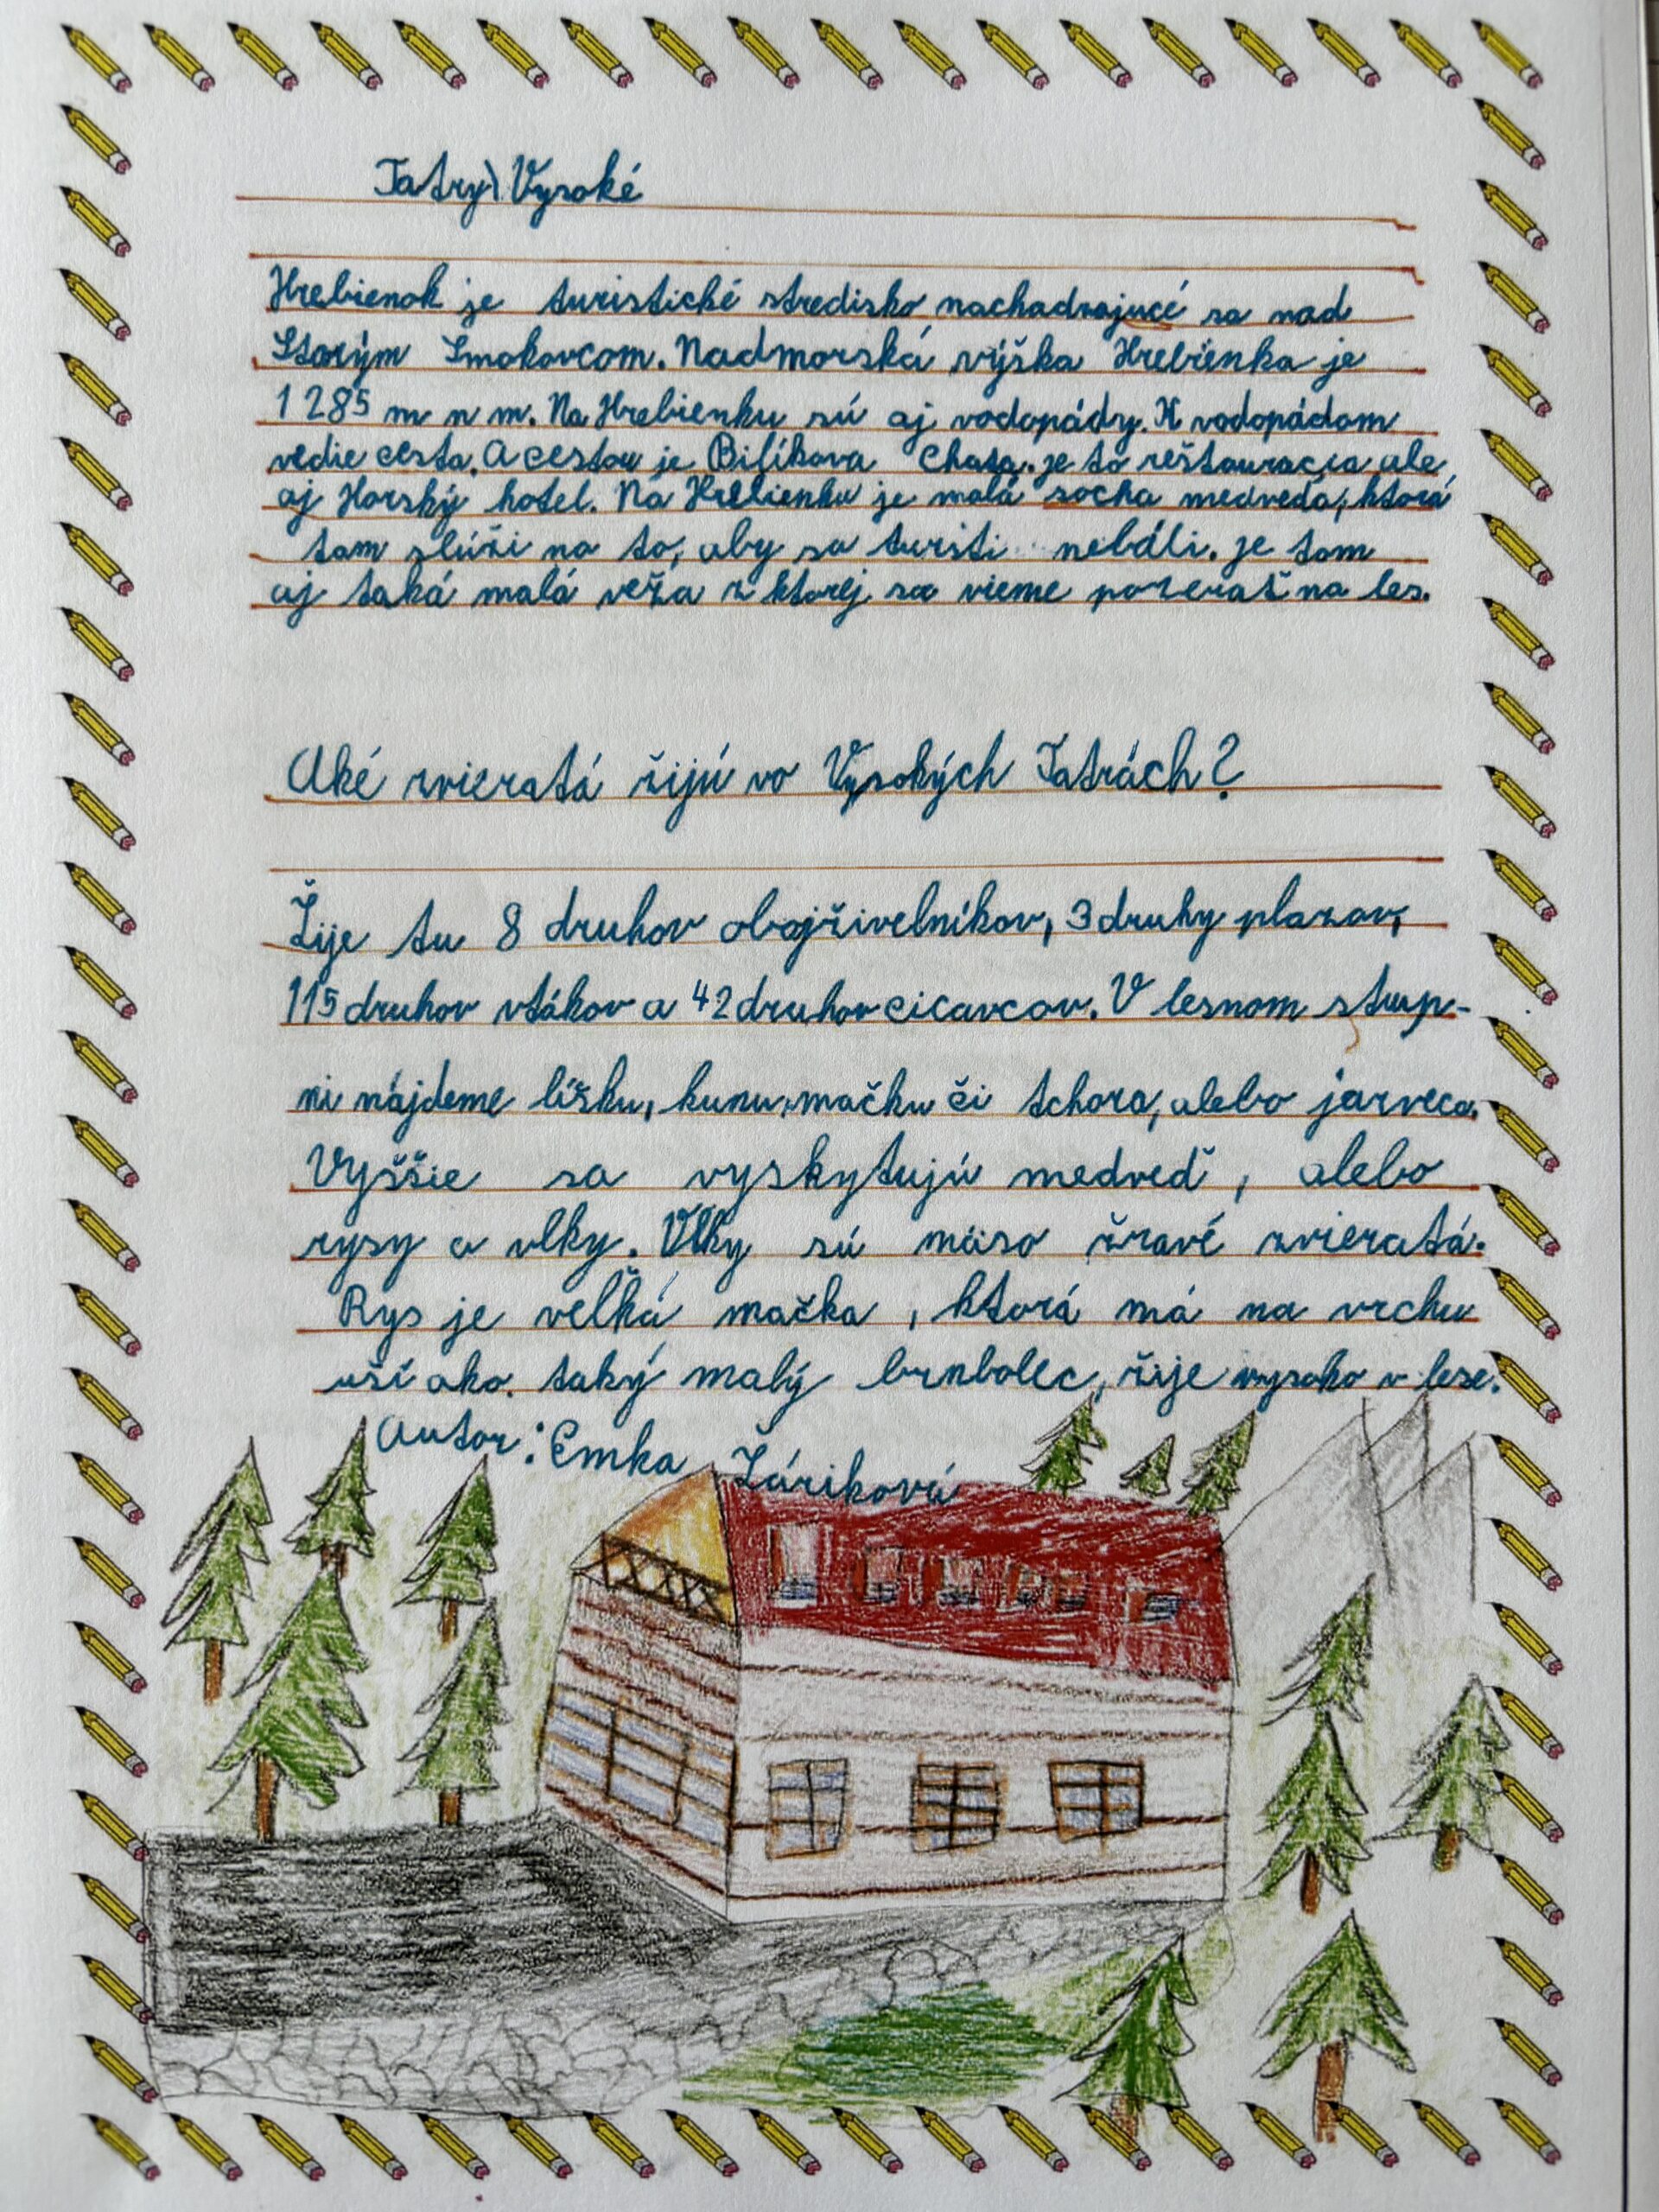 Tatry Vysoké
Hrebienok je turistické stredisko nachadzajucé sa nad
Starým Smokovcom. Nadmorská výška Hrebienka je
1285 m n m. Na Hrebienku sú aj vodopády. K vodopádom
vedie cesta. A cestou je Bilíkova Chata. je to reštauracia ale
aj Horský hotel. Na Hrebienku je malá socha medveďa, ktorá
tam slúži na to, aby sa turisti nebáli. je tam
aj taká malá veža z ktorej sa vieme pozerať na les.
Aké zvieratá žijú vo Vysokých Tatrách?
Žije tu 8 druhov obojživelníkov, 3 druhy plazov,
115 druhov vtákov a 42 druhov cicavcov. V lesnom stup-
ni nájdeme líšku, kunu, mačku či tchora, alebo jazveca.
Vyššie sa vyskytujú medveď, alebo
rysy a vlky. Vlky sú mäso žravé zvieratá.
Rys je veľká mačka, ktorá má na vrchu
uší ako. taký malý brnbolec, žije vysoko v lese.
Autor: Emka Žáriková